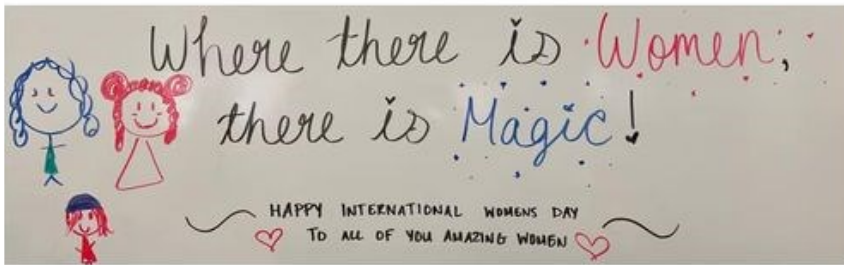 Where there is Women,
there is Magic!
HAPPY INTERNATIONAL WOMENS DAY
TO ALL OF YOU AMAZING WOMEN